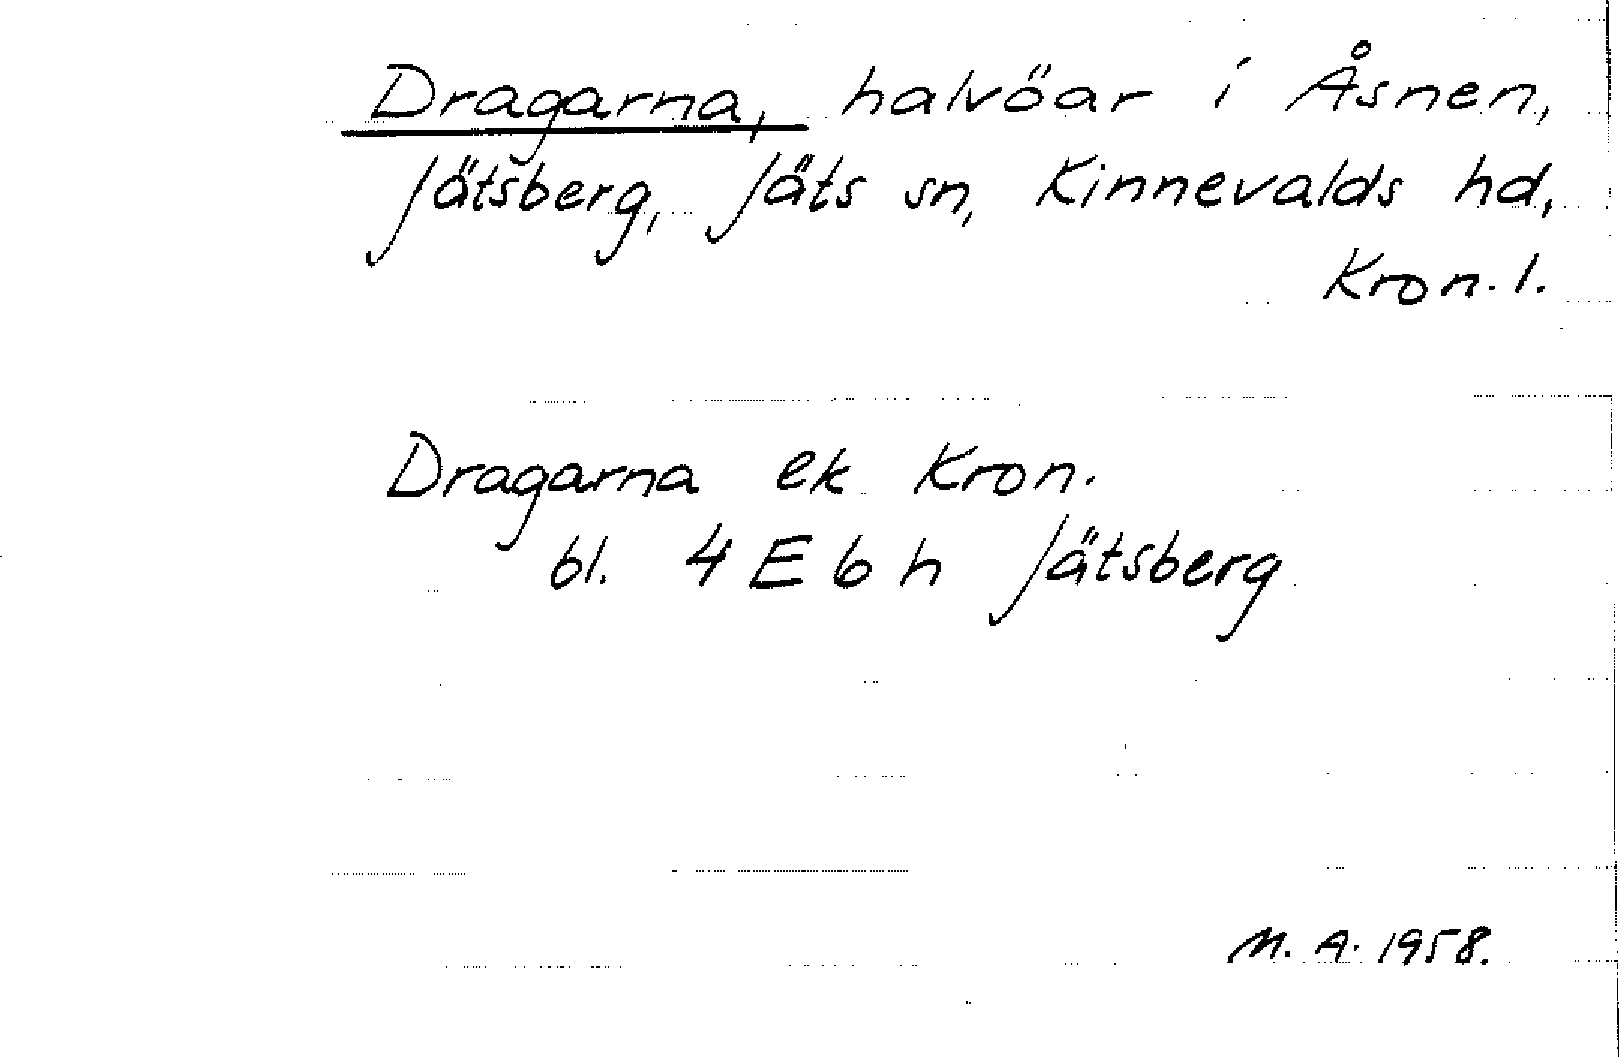 Dragarna, halvöar i Åsnen,
Jätsberg, Jäts sn, Kinnevalds hd,
Kron. l.
Dragarna ek Kron.
bl. 4 E 6 h Jätsberg
M. A. 1958.